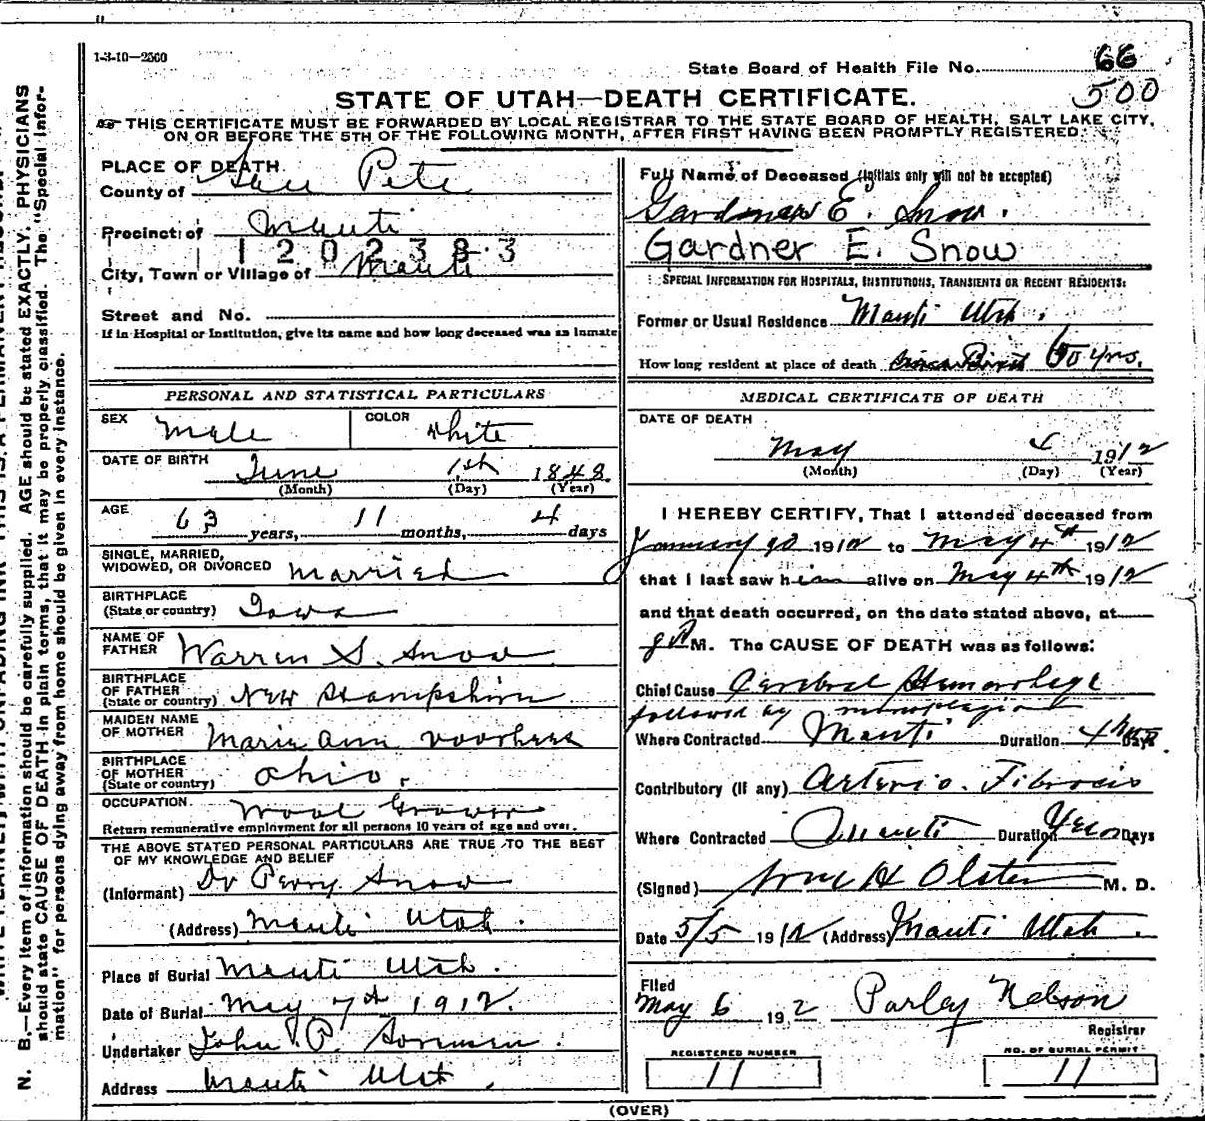 1-3-10—2560
State Board of Health File No. 66
500
STATE OF UTAH—DEATH CERTIFICATE.
THIS CERTIFICATE MUST BE FORWARDED BY LOCAL REGISTRAR TO THE STATE BOARD OF HEALTH, SALT LAKE CITY,
ON OR BEFORE THE 5TH OF THE FOLLOWING MONTH, AFTER FIRST HAVING BEEN PROMPTLY REGISTERED.
PLACE OF DEATH
County of San Pete
Precinct of Manti
1202383
City, Town or Village of Manti
Street and No.
If in Hospital or Institution, give its name and how long deceased was an Inmate
Full Name of Deceased (Initials only will not be accepted)
Gardner E. Snow.
Gardner E. Snow
SPECIAL INFORMATION FOR HOSPITALS, INSTITUTIONS, TRANSIENTS OR RECENT RESIDENTS:
Former or Usual Residence Manti Utah.
How long resident at place of death 60 yrs.
PERSONAL AND STATISTICAL PARTICULARS
SEX Male COLOR White
DATE OF BIRTH June 1st 1848
(Month) (Day) (Year)
AGE 63 years, 11 months, 4 days
SINGLE, MARRIED,
WIDOWED, OR DIVORCED Married
BIRTHPLACE
(State or country) Iowa
NAME OF
FATHER Warren S. Snow
BIRTHPLACE
OF FATHER
(State or country) New Hampshire
MAIDEN NAME
OF MOTHER Maria Ann Voorhees
BIRTHPLACE
OF MOTHER
(State or country) Ohio.
OCCUPATION Wool Grower
Return remunerative employment for all persons 10 years of age and over.
THE ABOVE STATED PERSONAL PARTICULARS ARE TRUE TO THE BEST
OF MY KNOWLEDGE AND BELIEF
(Informant) Dr Perry Snow
(Address) Manti Utah.
Place of Burial Manti Utah.
Date of Burial May 7th 1912.
Undertaker John P. Sorensen.
Address Manti Utah.
MEDICAL CERTIFICATE OF DEATH
DATE OF DEATH
May 4 1912
(Month) (Day) (Year)
I HEREBY CERTIFY, That I attended deceased from
January 1912 to May 4th 1912
that I last saw him alive on May 4th 1912
and that death occurred, on the date stated above, at
M. The CAUSE OF DEATH was as follows:
Chief Cause Cerebral Hemorrhage
followed by monoplegia
Where Contracted Manti Duration 4 Days
Contributory (if any) Arterio. Fibrosis
Where Contracted Manti Duration Years Days
(Signed) Wm H Olsten M. D.
Date 5/5 1912 (Address) Manti Utah.
Filed
May 6 1912 Parley Nelson
Registrar
REGISTERED NUMBER
11
NO. OF BURIAL PERMIT
11
(OVER)
N. B.—Every item of information should be carefully supplied. AGE should be stated EXACTLY. PHYSICIANS
should state CAUSE OF DEATH in plain terms, that it may be properly classified. The "Special Infor-
mation" for persons dying away from home should be given in every instance.